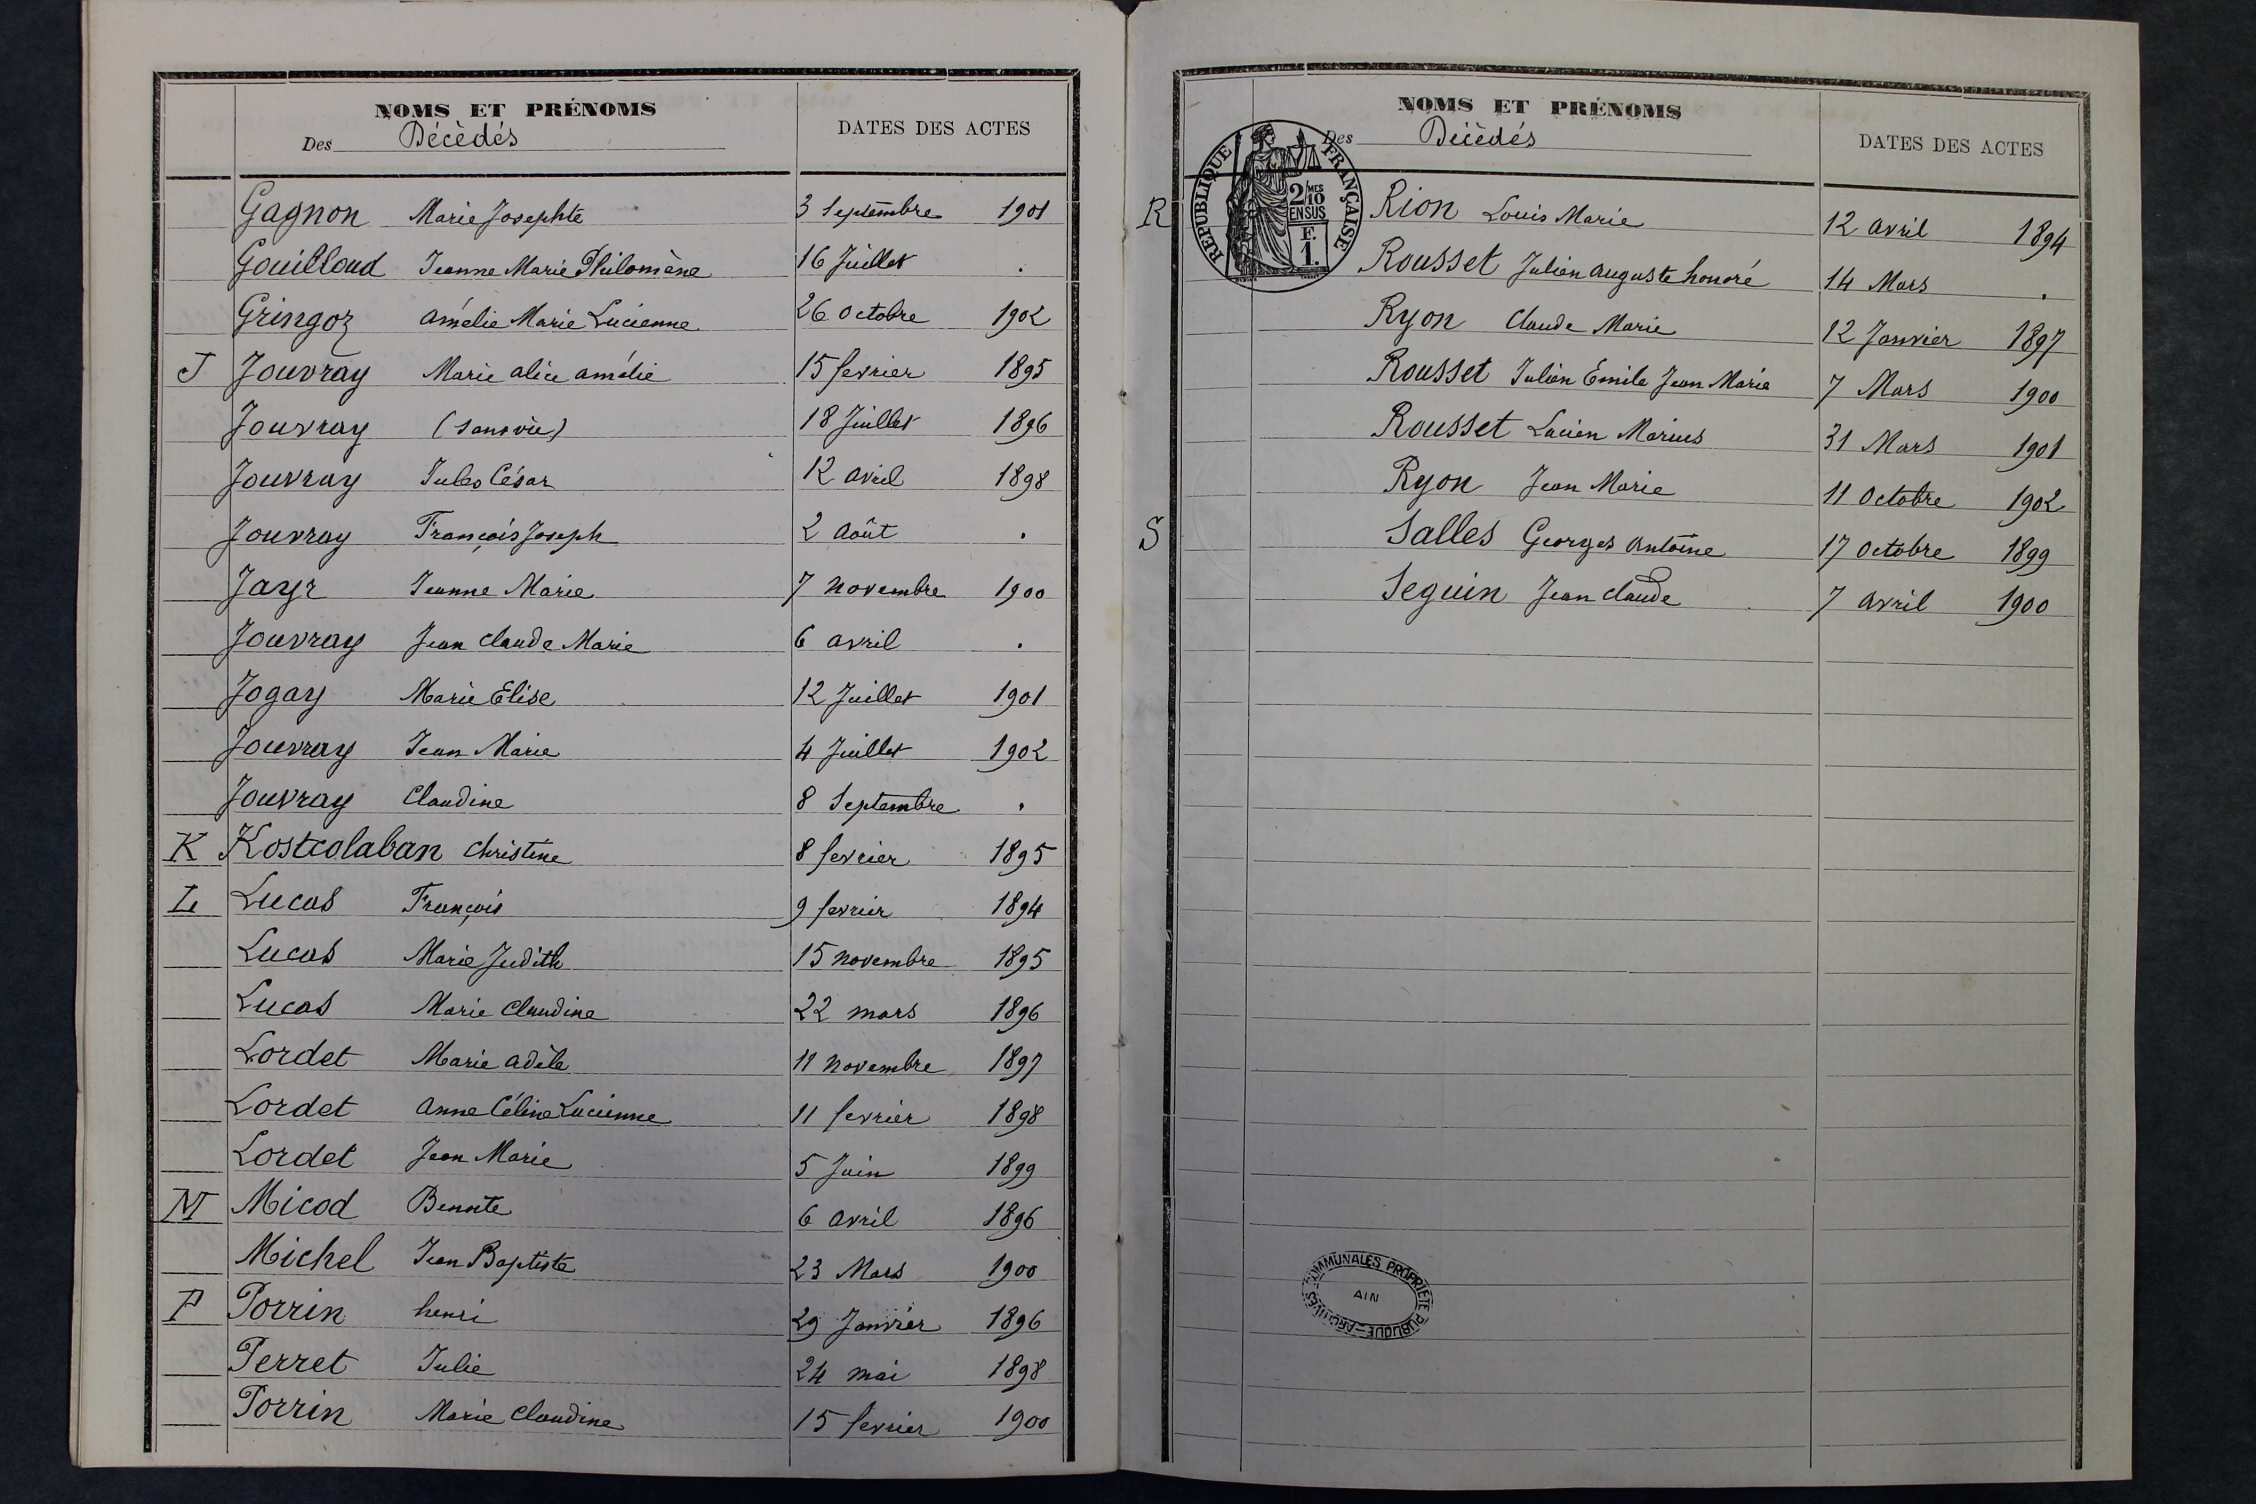 NOMS ET PRÉNOMS
Des Décèdés
DATES DES ACTES
Gagnon Marie Josephte 3 Septembre 1901
Gouilloud Jeanne Marie Philomène 16 Juillet .
Gringoz Amélie Marie Lucienne 26 Octobre 1902
J Jouvray Marie alice amélie 15 fevrier 1895
Jouvray (sans vie) 18 Juillet 1896
Jouvray Jules César 12 avril 1898
Jouvray François Joseph 2 Août .
Jayr Jeanne Marie 7 Novembre 1900
Jouvray Jean Claude Marie 6 avril .
Jogay Marie Elise 12 Juillet 1901
Jouvray Jean Marie 4 Juillet 1902
Jouvray Claudine 8 Septembre .
K Kostcolaban Christine 8 fevrier 1895
L Lucas François 9 fevrier 1894
Lucas Marie Judith 15 Novembre 1895
Lucas Marie Claudine 22 mars 1896
Lordet Marie Adèle 11 Novembre 1897
Lordet Anne Céline Lucienne 11 fevrier 1898
Lordet Jean Marie 5 Juin 1899
M Micod Benoite 6 avril 1896
Michel Jean Baptiste 23 Mars 1900
P Porrin henri 29 Janvier 1896
Perret Julie 24 mai 1898
Porrin Marie Claudine 15 fevrier 1900
NOMS ET PRÉNOMS
Des Décèdés
DATES DES ACTES
REPUBLIQUE FRANÇAISE
2/10 MES
EN SUS
F.
1.
R Rion Louis Marie 12 avril 1894
Rousset Julien Auguste honoré 14 Mars .
Ryon Claude Marie 12 Janvier 1897
Rousset Julien Emile Jean Marie 7 Mars 1900
Rousset Lucien Marius 31 Mars 1901
Ryon Jean Marie 11 Octobre 1902
S Salles Georges Antoine 17 Octobre 1899
Seguin Jean Claude 7 avril 1900
ARCHIVES COMMUNALES PROPRIÉTÉ PUBLIQUE
AIN